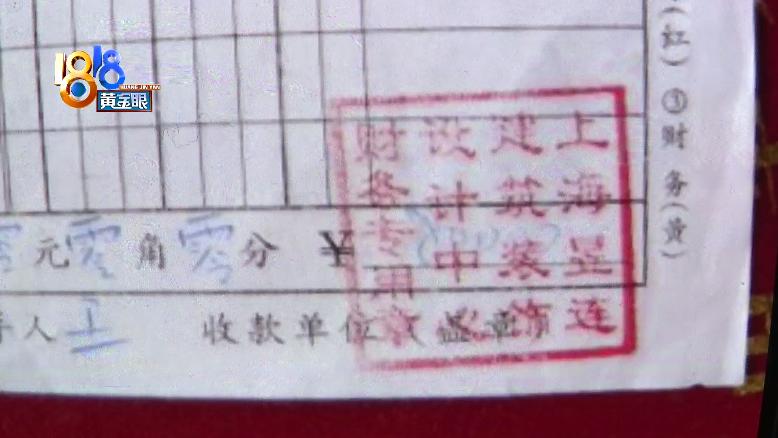 1818
HUANG JIN YAN
黄金眼
(红) ③财务(黄)
上海 连
建筑装饰
设计中心
财务专用章
元零角零分 ¥
人 收款单位(盖章)